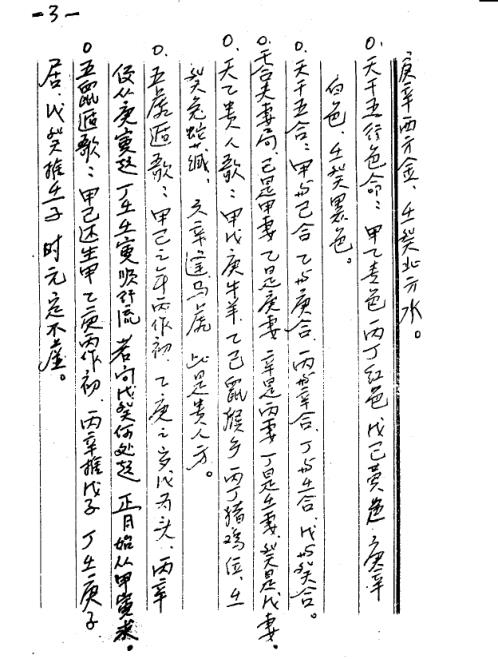 -3-
庚辛西方金、壬癸北方水。
0.天干五行色命：甲乙青色 丙丁红色 戊己黄色 庚辛
白色、壬癸黑色。
0.天干五合：甲与己合 乙与庚合、丙与辛合、丁与壬合、戊与癸合。
0.天合夫妻局、己是甲妻 乙是庚妻 辛是丙妻 丁是壬妻、癸是戊妻.
0.天乙贵人歌：甲戊庚牛羊、乙己鼠猴乡 丙丁猪鸡位、壬
癸兔蛇藏、六辛逢马虎 此是贵人方。
0.五虎遁歌：甲己之年丙作初、乙庚之岁戊为头、丙辛
便从庚寅起 丁壬壬寅顺行流 若问戊癸何处起 正月始从甲寅求.
0.五鼠遁歌：甲己还生甲 乙庚丙作初、丙辛推戊子 丁壬庚子
居、戊癸推壬子 时元定不虚。